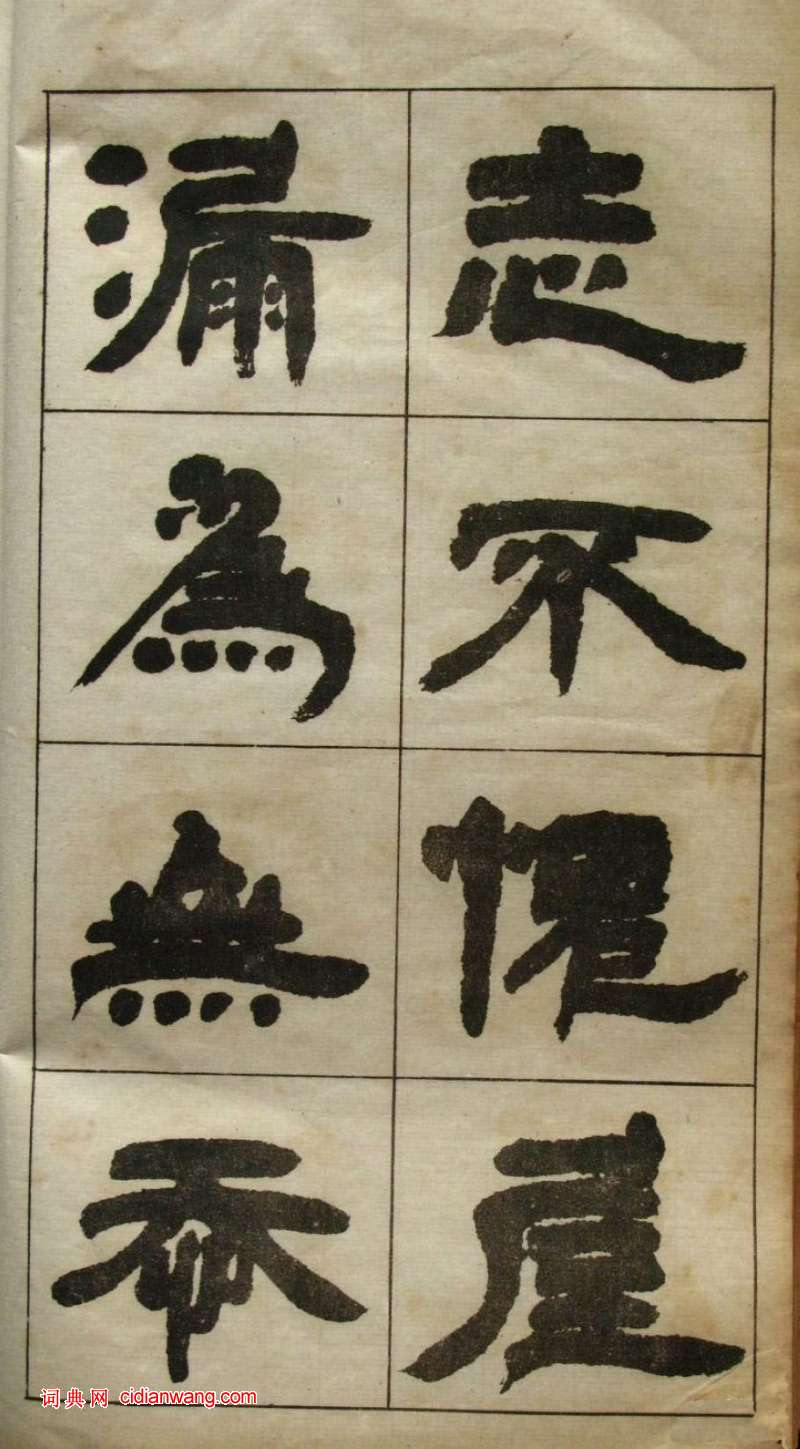 志不愧屋
漏為無忝
词典网 cidianwang.com